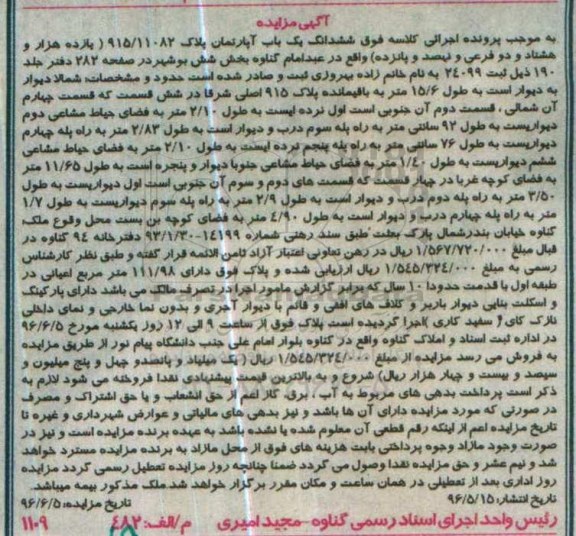 آگهی مزایده
به موجب پرونده اجرائی کلاسه فوق ششدانگ یک باب آپارتمان پلاک ۹۱۵/۱۱۰۸۲ ( یازده هزار و
هشتاد و دو فرعی و نهصد و پانزده) واقع در عبدامام گناوه بخش شش بوشهر در صفحه ۲۸۲ دفتر جلد
۱۹۰ ذیل ثبت ۲۴۰۹۹ به نام خانم زاده بهروزی ثبت و صادر شده است حدود و مشخصات: شمالا دیوار
به دیوار است به طول ۱۵/۶ متر به باقیمانده پلاک ۹۱۵ اصلی شرقا در شش قسمت که قسمت چهارم
آن شمالی ، قسمت دوم آن جنوبی است اول نرده ایست به طول ۲/۱۰ متر به فضای حیاط مشاعی دوم
دیواریست به طول ۹۲ سانتی متر به راه پله سوم درب و دیوار است به طول ۲/۸۳ متر به راه پله چهارم
دیواریست به طول ۷۶ سانتی متر به راه پله پنجم نرده ایست به طول ۲/۱۰ متر به فضای حیاط مشاعی
ششم دیواریست به طول ۱/۴۰ متر به فضای حیاط مشاعی جنوبا دیوار و پنجره است به طول ۱۱/۶۵ متر
به فضای کوچه غربا در چهار قسمت که قسمت های دوم و سوم آن جنوبی است اول دیواریست به طول
۳/۵۰ متر به راه پله دوم درب و دیوار است به طول ۲/۹ متر به راه پله سوم دیواریست به طول ۱/۷
متر به راه پله چهارم درب و دیوار است به طول ۴/۹۰ متر به فضای کوچه بن بست محل وقوع ملک:
گناوه خیابان بندرشمال پارک بعثت طبق سند رهنی شماره ۱۴۱۹۹-۹۳/۱/۳۰ دفترخانه ۹۴ گناوه در
قبال مبلغ ۱/۵۶۷/۷۲۰/۰۰۰ ریال در رهن تعاونی اعتبار آزاد ثامن الائمه قرار گفته و طبق نظر کارشناس
رسمی به مبلغ ۱/۵۴۵/۳۲۴/۰۰۰ ریال ارزیابی شده و پلاک فوق دارای ۱۱۱/۹۸ متر مربع اعیانی در
طبقه اول با قدمت حدودا ۱۰ سال که برابر گزارش مامور اجرا در تصرف مالک می باشد دارای پارکینگ
و اسکلت بنایی دیوار باربر و کلاف های افقی و قائم با دیوار آجری و بدون نما خارجی و نمای داخلی
نازک کای ( سفید کاری )اجرا گردیده است پلاک فوق از ساعت ۹ الی ۱۲ روز یکشنبه مورخ ۹۶/۶/۵
در اداره ثبت اسناد و املاک گناوه واقع در گناوه بلوار امام علی جنب دانشگاه پیام نور از طریق مزایده
به فروش می رسد مزایده از مبلغ ۱/۵۴۵/۳۲۴/۰۰۰ ریال ( یک میلیاد و پانصدو چهل و پنج میلیون و
سیصد و بیست و چهار هزار ریال) شروع و به بالاترین قیمت پیشنهادی نقدا فروخته می شود لازم به
ذکر است پرداخت بدهی های مربوط به آب ، برق، گاز اعم از حق انشعاب و یا حق اشتراک و مصرف
در صورتی که مورد مزایده دارای آن ها باشد و نیز بدهی های مالیاتی و عوارض شهرداری و غیره تا
تاریخ مزایده اعم از اینکه رقم قطعی آن معلوم شده یا نشده باشد به عهده برنده مزایده است و نیز در
صورت وجود مازاد وجوه پرداختی بابت هزینه های فوق از محل مازاد به برنده مزایده مسترد خواهد
شد و نیم عشر و حق مزایده نقدا وصول می گردد ضمنا چنانچه روز مزایده تعطیل رسمی گردد مزایده
روز اداری بعد از تعطیلی در همان ساعت و مکان مقرر برگزار خواهد شد ملک مذکور بیمه میباشد.
تاریخ انتشار: ۹۶/۵/۱۵ تاریخ مزایده: ۹۶/۶/۵
رئیس واحد اجرای اسناد رسمی گناوه -مجید امیری م/الف: ۴۸۲ ۱۱۰۹